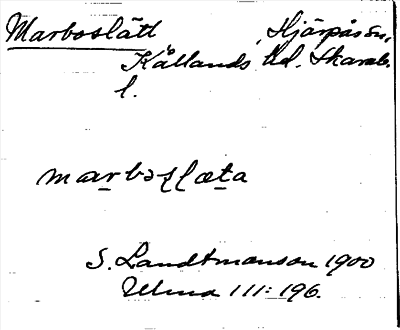 Marboslätt, Hjärpås sn,
Kållands hd. Skarab.
l.
marbəslæta
S. Landtmanson 1900
Ulma 111:196.